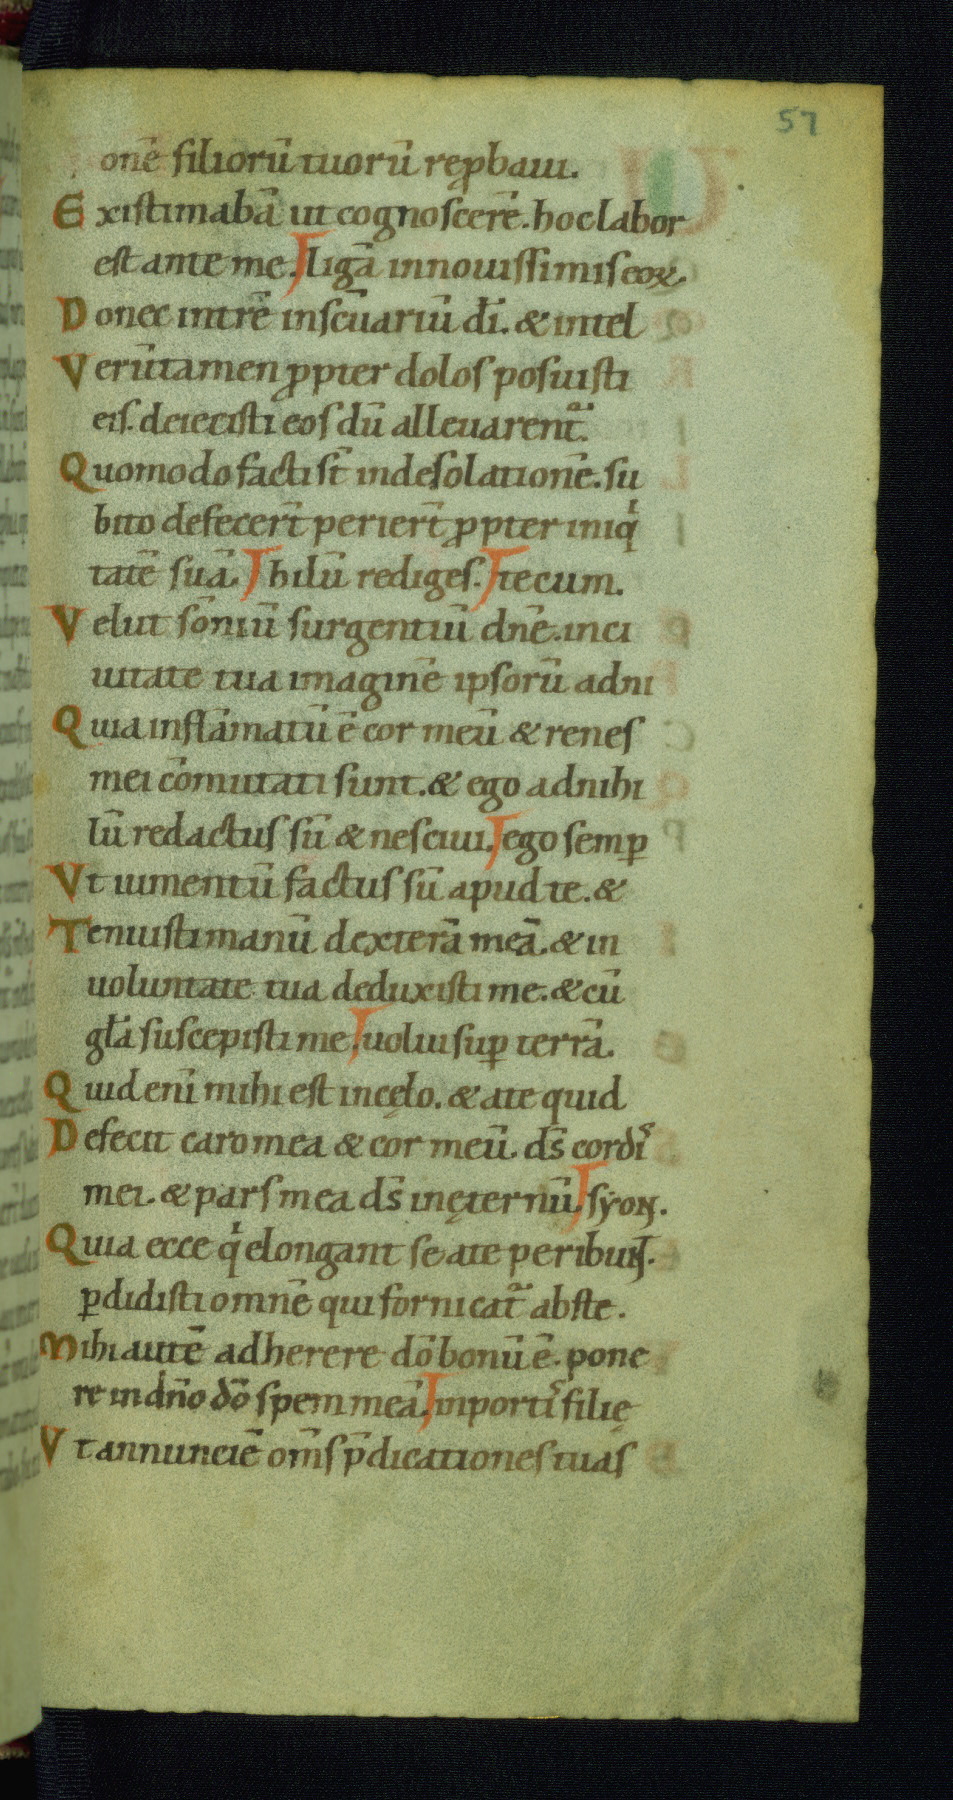 57
onē filiorū tuorū reꝓbaui.
Existimabā ut cognoscerē. hoc labor
est ante me. ligā in nouissimis eoꝝ.
Donec intrē in scūariū dī. & intel
Verūtamen ꝓpter dolos posuisti
eis. deiecisti eos dū alleuarent̄.
Quomodo facti st̄ in desolationē. su
bito defecer̄t perier̄t ꝓpter iniq
tatē suā. hilū rediges. tecum.
Velut som̄niū surgentiū dn̄e. in ci
uitate tua imaginē ipsorū ad ni
Quia inflāmatū ē cor meū & renes
mei cōmutati sunt. & ego ad nihi
lū redactus sū & nesciui. ego semꝑ
Vt iumentū factus sū apud te. &
Tenuisti manū dexterā meā. & in
uoluntate tua deduxisti me. & cū
gl̄a suscepisti me. uolui suꝑ terrā.
Quid enī mihi est in cęlo. & a te quid
Defecit caro mea & cor meū. ds̄ cordis
mei. & pars mea ds̄ in ęternū. syon.
Quia ecce qi elongant se a te peribuɴᴛ.
ꝑdidisti omnē qui fornicat̄ abs te.
Mihi autē adherere dō bonū ē. pone
re in dn̄o dō spem meā. in portis filię
Vt annunciē om̄s p̄dicationes tuas